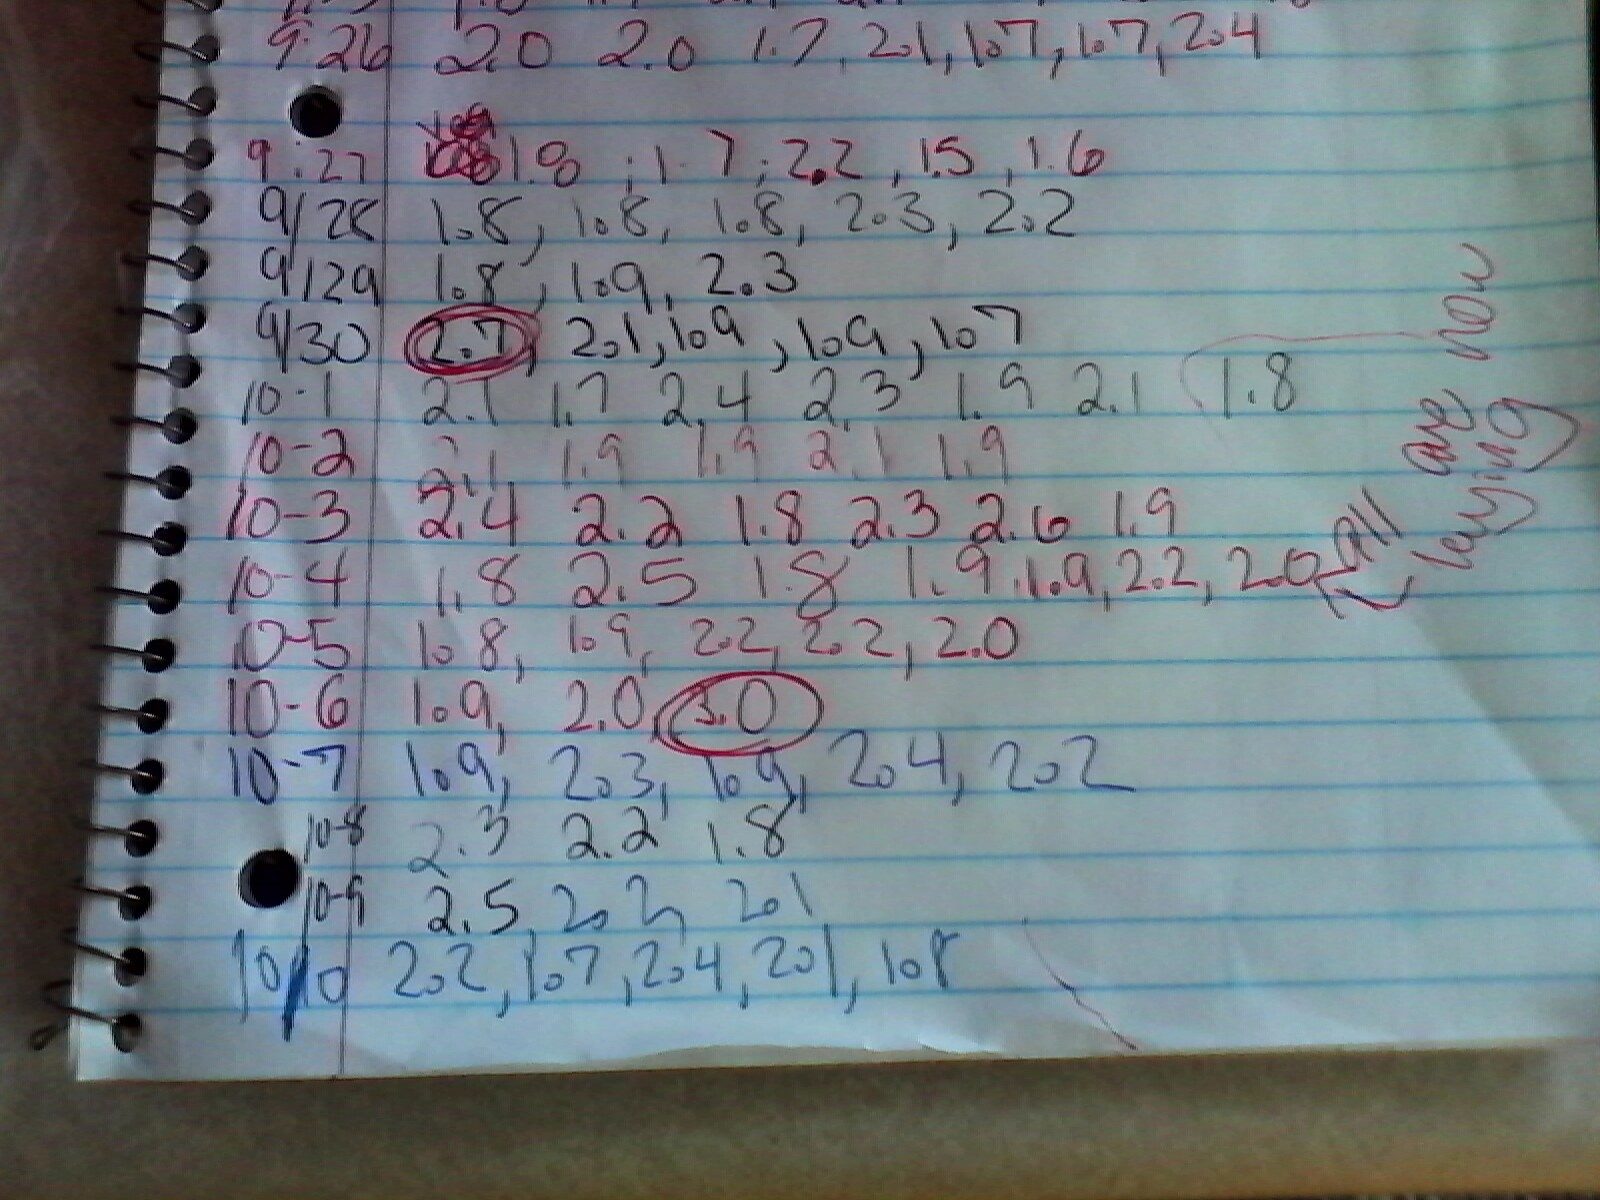 9:26 2.0 2.0 1.7, 2.1, 1.7, 1.7, 2.4
9:27 1.8 ; 1.7 ; 2.2 , 1.5 , 1.6
9/28 1.8, 1.8, 1.8, 2.3, 2.2
9/29 1.8, 1.9, 2.3
9/30 2.7, 2.1, 1.9, 1.9, 1.7
10-1 2.1 1.7 2.4 2.3 1.9 2.1 1.8
10-2 2.1 1.9 1.9 2.1 1.9
10-3 2.4 2.2 1.8 2.3 2.6 1.9
10-4 1.8 2.5 1.8 1.9 1.9, 2.2, 2.0
10-5 1.8, 1.9, 2.2, 2.2, 2.0
10-6 1.9, 2.0, 3.0
10-7 1.9, 2.3, 1.9, 2.4, 2.2
10-8 2.3 2.2 1.8
10-9 2.5, 2.2, 2.1
10/10 2.2, 1.7, 2.4, 2.1, 1.8
all are now
laying